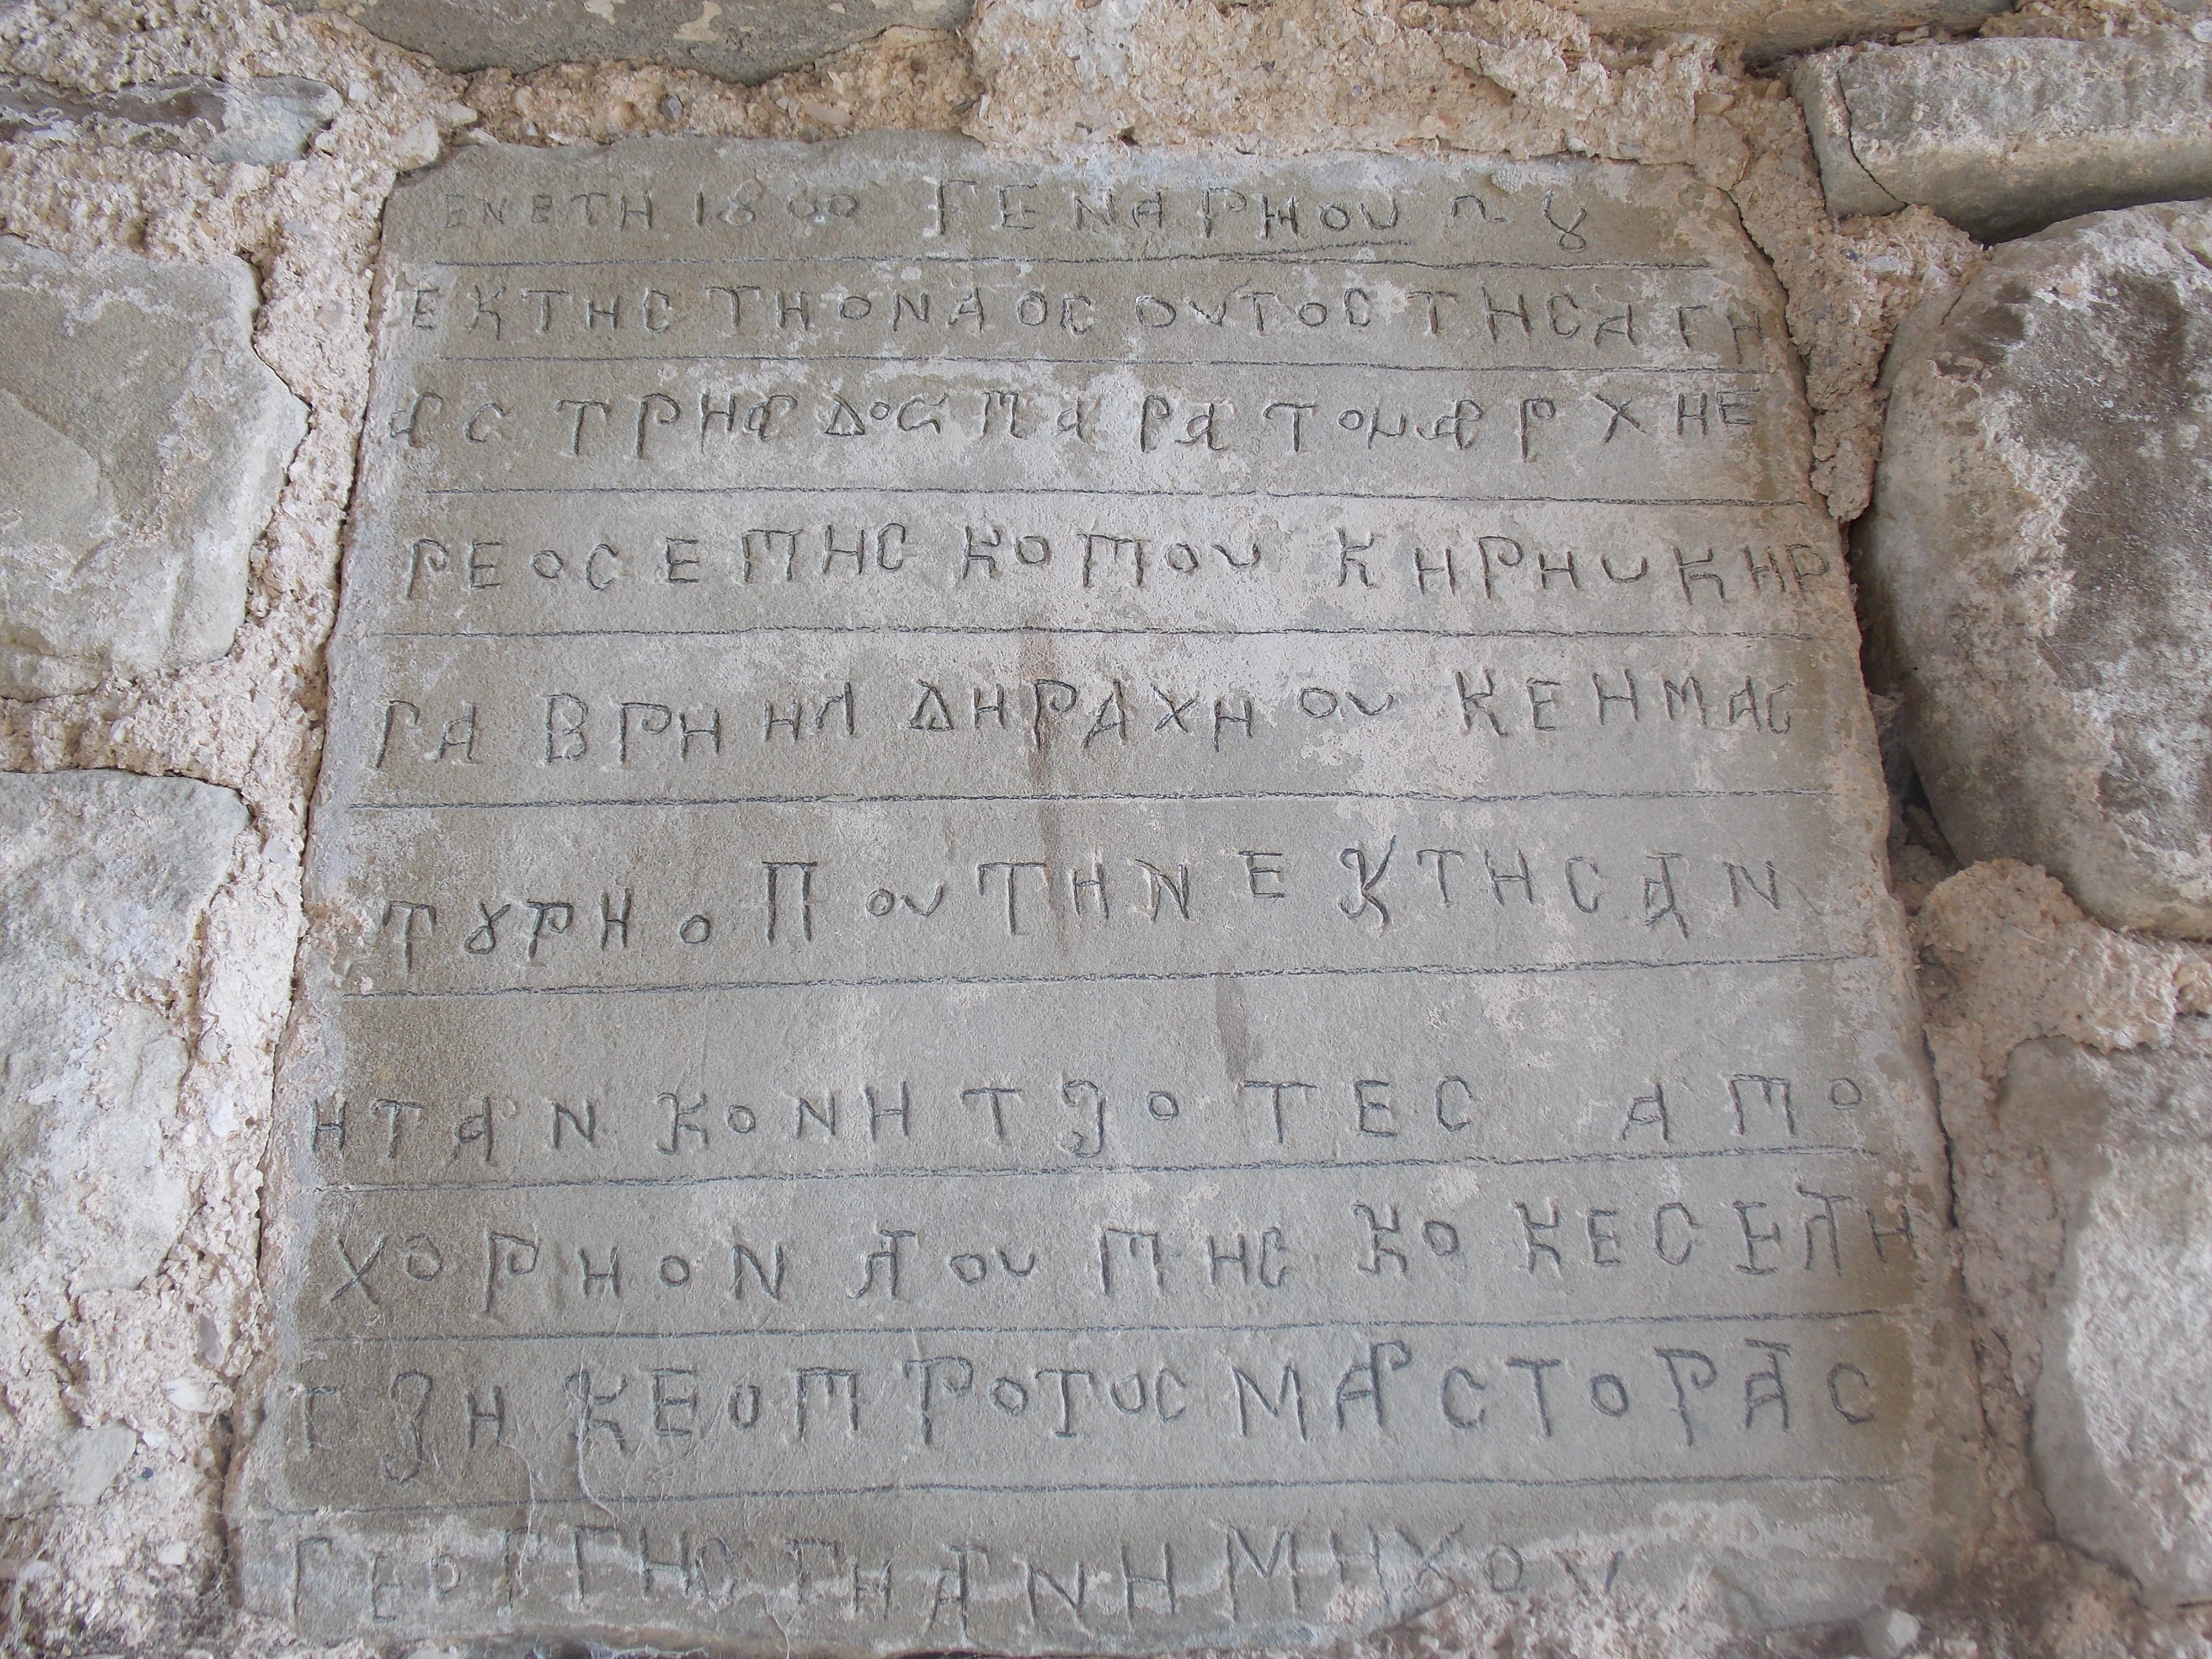 ΕΝΕΤΗ 1800 ΓΕΝΑΡΗΟΥ
ΕΚΤΗΣΤΗΟΝΑΟΣ ΟΥΤΟΣ ΤΗΣΑΓΗ
ΑΣ ΤΡΗΑΔΟΣ ΠΑΡΑ ΤΟΝ ΑΡΧΗΕ
ΡΕΟΣ ΕΠΗΣΚΟΠΟΥ ΚΗΡΗΥ ΚΗΡ
ΓΑΒΡΗΗΛ ΔΗΡΑΧΗΟΥ ΚΕ Η ΜΑΣ
ΤΟΥΡΗ ΟΠΟΥ ΤΗΝ ΕΚΤΗΣΑΝ
ΗΤΑΝ ΚΟΝΗΤΖΟΤΕΣ ΑΠΟ
ΧΟΡΗΟΝ ΑΠΟΥΠΗΣΚΟ ΚΕ ΣΕΛΤΗ
ΤΖΗ ΚΕ Ο ΠΡΟΤΟΣ ΜΑΣΤΟΡΑΣ
ΓΕΟΡΓΗΣ ΓΗΑΝΗ ΜΗΧΟΥ